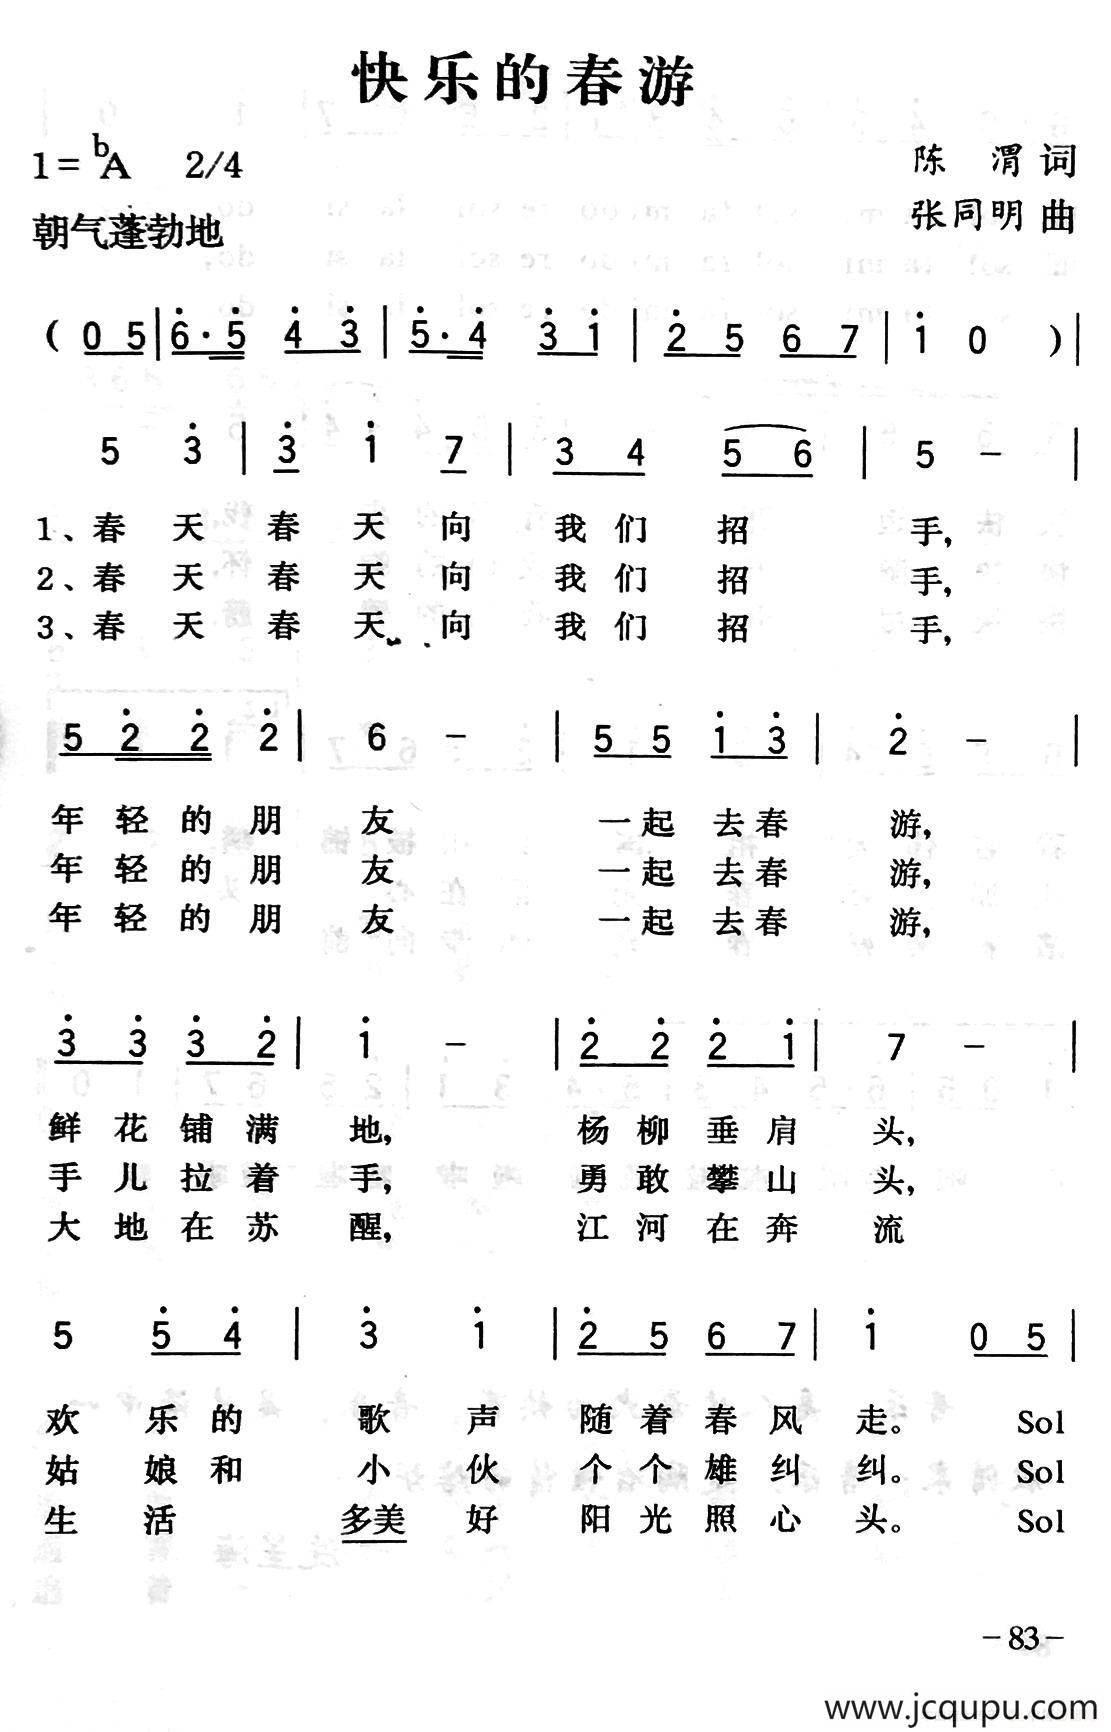 快乐的春游
1=bA 2/4
陈 渭 词
朝气蓬勃地
张同明 曲
( 0 5 | 6̇·5̇ 4̇ 3̇ | 5̇·4̇ 3̇ 1̇ | 2̇ 5 6 7 | 1̇ 0 ) |
5 3̇ | 3̇ 1̇ 7 | 3 4 5 6 | 5 - |
1、春 天 春 天 向 我 们 招 手,
2、春 天 春 天 向 我 们 招 手,
3、春 天 春 天 向 我 们 招 手,
5 2̇ 2̇ 2̇ | 6 - | 5 5 1̇ 3̇ | 2̇ - |
年 轻 的 朋 友 一 起 去 春 游,
年 轻 的 朋 友 一 起 去 春 游,
年 轻 的 朋 友 一 起 去 春 游,
3̇ 3̇ 3̇ 2̇ | 1̇ - | 2̇ 2̇ 2̇ 1̇ | 7 - |
鲜 花 铺 满 地, 杨 柳 垂 肩 头,
手 儿 拉 着 手, 勇 敢 攀 山 头,
大 地 在 苏 醒, 江 河 在 奔 流
5 5̇ 4̇ | 3̇ 1̇ | 2̇ 5 6 7 | 1̇ 0 5 |
欢 乐 的 歌 声 随 着 春 风 走。 Sol
姑 娘 和 小 伙 个 个 雄 纠 纠。 Sol
生 活 多美 好 阳 光 照 心 头。 Sol
-83-
www.jcqupu.com